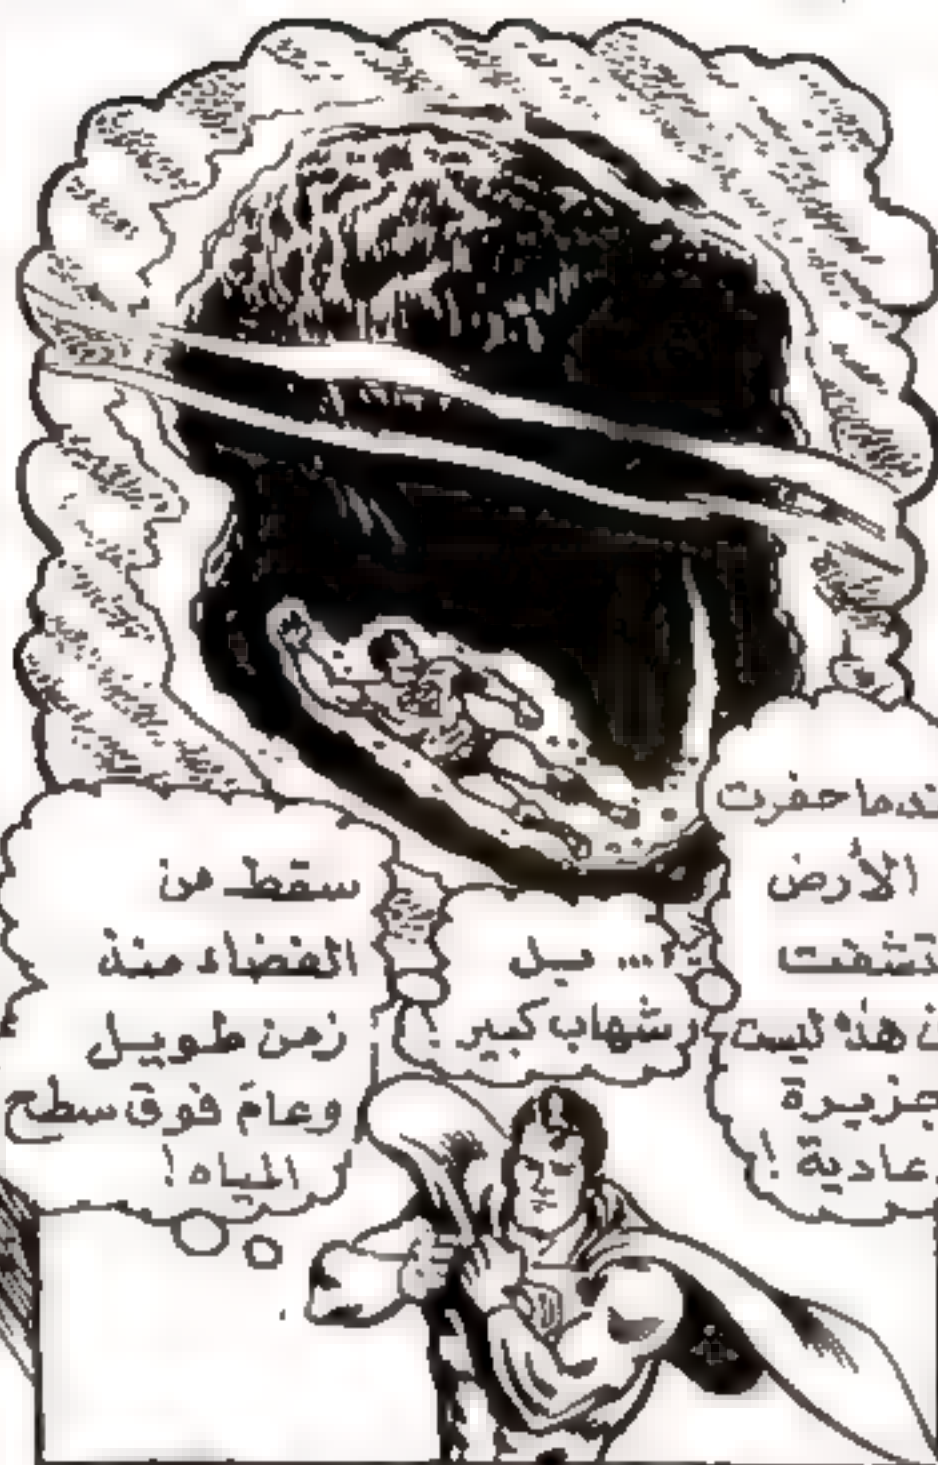 ندما حفرت
الأرض
تشفت
ن هذه ليست
جزيرة
عادية!
... بل
شهاب كبير!
سقط من
الفضاء منذ
زمن طويل
وعامَ فوق سطح
المياه!